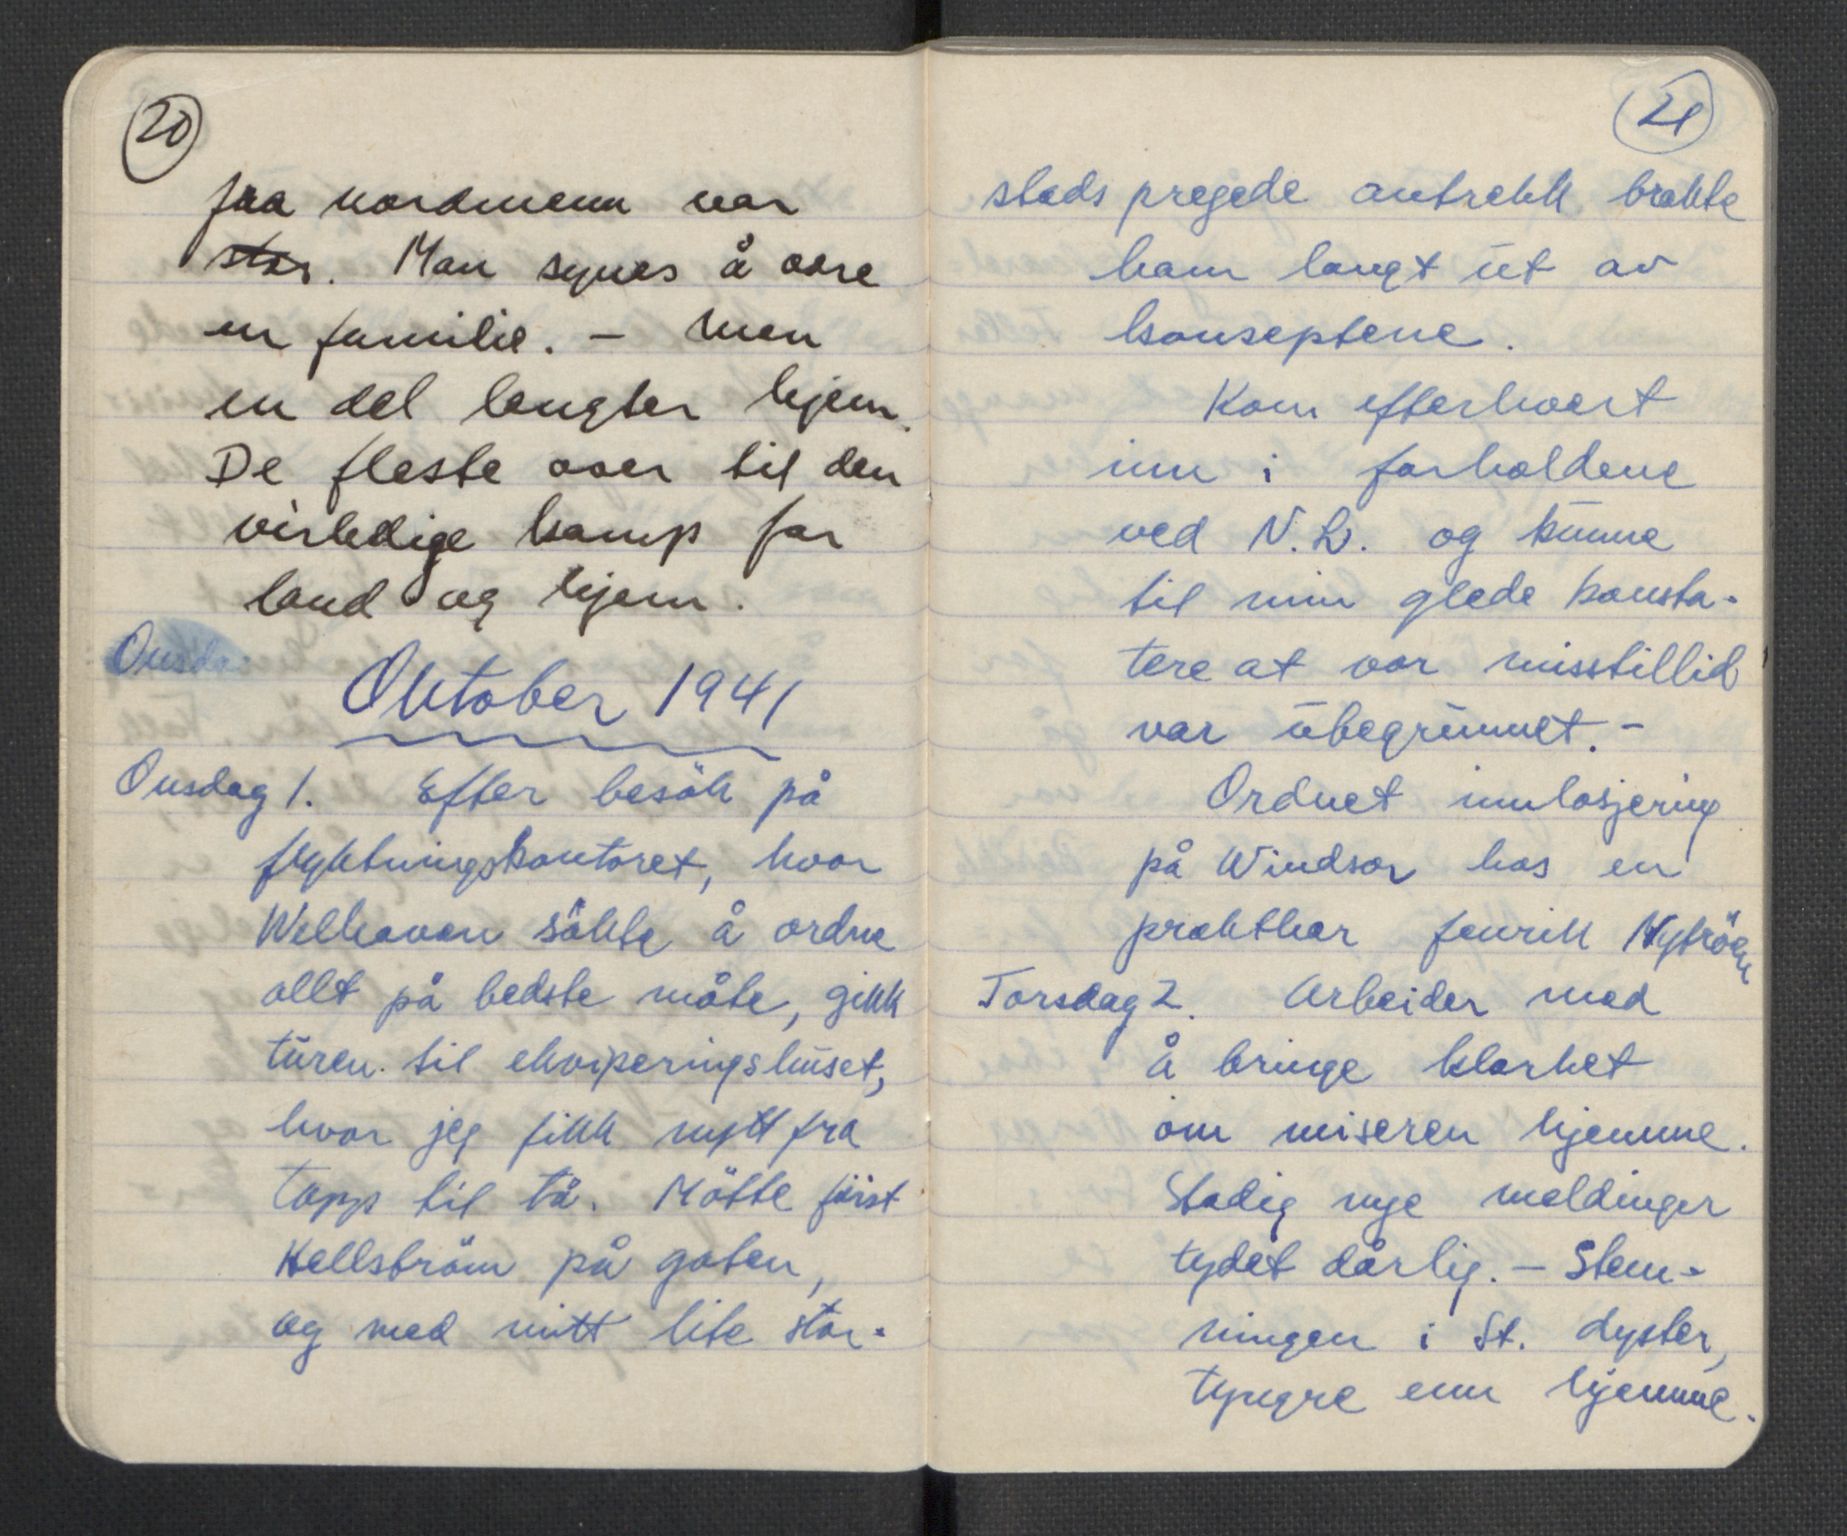 20
faa nordmenn var
stor. Man synes å vare
en familie. - Men
en del lengter hjem.
De fleste over til den
virkelige kamp for
land og hjem.
Onsda
Oktober 1941
Onsdag 1. Efter besök på
flyktningskontoret, hvor
Welhaven sökte å ordne
allt på bedste måte, gikk
turen til ekviperingshuset,
hvor jeg fikk nytt fra
topp til tå. Mötte först
Hellström på gaten,
og med mitt lite stor-
21
stads pregede antrekk brakte
ham langt ut av
konseptene.
Kom efterhvert
inn i forholdene
ved N.L. og kunne
til min glede konsta-
tere at vor misstillid
var ubegrunnet. -
Ordnet innlosjering
på Windsor hos en
praktkar fenrik Nytröen
Torsdag 2. Arbeider med
å bringe klarhet
om miseren hjemme.
Stadig nye meldinger
tydet dårlig. - Stem-
ningen i St. dyster,
tyngre enn hjemme.